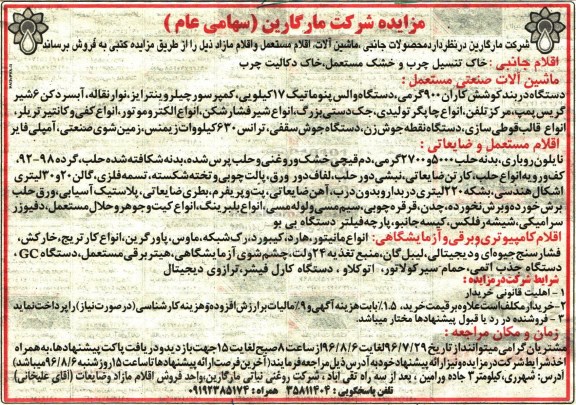 مزایده شرکت مارگارین (سهامی عام)
شرکت مارگارین درنظردارد محصولات جانبی، ماشین آلات، اقلام مستعمل واقلام مازاد ذیل را از طریق مزایده کتبی به فروش برساند
اقلام جانبی : خاک تنسیل چرب و خشک مستعمل، خاک دکالیت چرب
ماشین آلات صنعتی مستعمل :
دستگاه دربندکوشش کاران ۹۰۰گرمی، دستگاه والس پنوماتیک ۱۷کیلویی، کمپرسورچیلروینترایز، نوارنقاله، آبسردکن ۶شیر
گریس پمپ، مرکزتلفن، انواع چاپگرتولیدی، جک دستی بزرگ، انواع شیرفشارشکن، انواع الکتروموتور، انواع کفی وکانتینرتریلر،
انواع قالب قوطی سازی، دستگاه نقطه جوش زن، دستگاه جوش سقفی، ترانس ۶۳۰کیلووات زیمنس، زمین شوی صنعتی، آمپلی فایر
اقلام مستعمل و ضایعاتی :
نایلون روباری، بدنه حلب ۵۰۰۰و۲۷۰۰گرمی، دم قیچی خشک وروغنی وحلب پرس شده، بدنه شکافته شده حلب، گرده ۹۸-۹۲،
کف ورویه انواع حلب، کارتن ضایعاتی، نبشی دور حلب، لفاف دور ورق، پالت چوبی وتخته شکسته، تسمه فلزی، گالن ۲۰و۳۰لیتری
اشکال هندسی، بشکه ۲۲۰لیتری دربدار وبدون درب، آهن ضایعاتی، پت وپریفرم، بطری ضایعاتی، پلاستیک آسیابی، ورق حلب
برش خورده وبرش نخورده، چدن، قرقره چوبی، سیم مسی ولوله مسی، انواع بلبرینگ، انواع کیت وجوهر وحلال مستعمل، دفیوزر
سرامیکی، شیشه رفلکس، کیسه جانبو، پارچه فیلتر دستگاه بی بو
اقلام کامپیوتری وبرقی وآزمایشگاهی: انواع مانیتور، هارد، کیبورد، رک شبکه، ماوس، پاورگرین، انواع کارتریج، خارکش،
فشارسنج جیوه ای ودیجیتالی، لیبل گان، منبع تغذیه ۲۴ولت، چشم شوی آزمایشگاهی، هیتربرقی مستعمل، دستگاه GC،
دستگاه جذب اتمی، حمام سیرکولاتور، اتوکلاو ، دستگاه کارل فیشر، ترازوی دیجیتال
شرایط شرکت درمزایده :
۱- اهلیت قانونی خریدار
۲- خریدارمکلف است علاوه برقیمت خرید، ۱.۵٪بابت هزینه آگهی و۹٪مالیات برارزش افزوده وهزینه کارشناسی (درصورت نیاز) راپرداخت نماید
۳- فروشنده در رد یا قبول پیشنهادها مختار میباشد.
زمان و مکان مراجعه :
مشتریان گرامی میتوانند از تاریخ ۹۶/۷/۲۹لغایت ۹۶/۸/۶ ازساعت ۸صبح لغایت ۱۵جهت بازدید ودریافت پاکت پیشنهادها، به همراه
اخذ شرایط شرکت درمزایده ونیز ارائه پیشنهاد خود به آدرس ذیل مراجعه فرمایند( آخرین فرصت ارائه پیشنهادها تا ساعت ۱۵ روز شنبه ۹۶/۸/۶ میباشد)
آدرس: شهرری، کیلومتر ۳ جاده ورامین ، بعد از سه راه تقی آباد ، شرکت روغن نباتی مارگارین، واحد فروش اقلام مازاد وضایعات (آقای علیخانی)
تلفن پاسخگویی : ۳۵۸۱۱۴۰۴ همراه : ۰۹۱۹۲۳۸۵۱۷۴